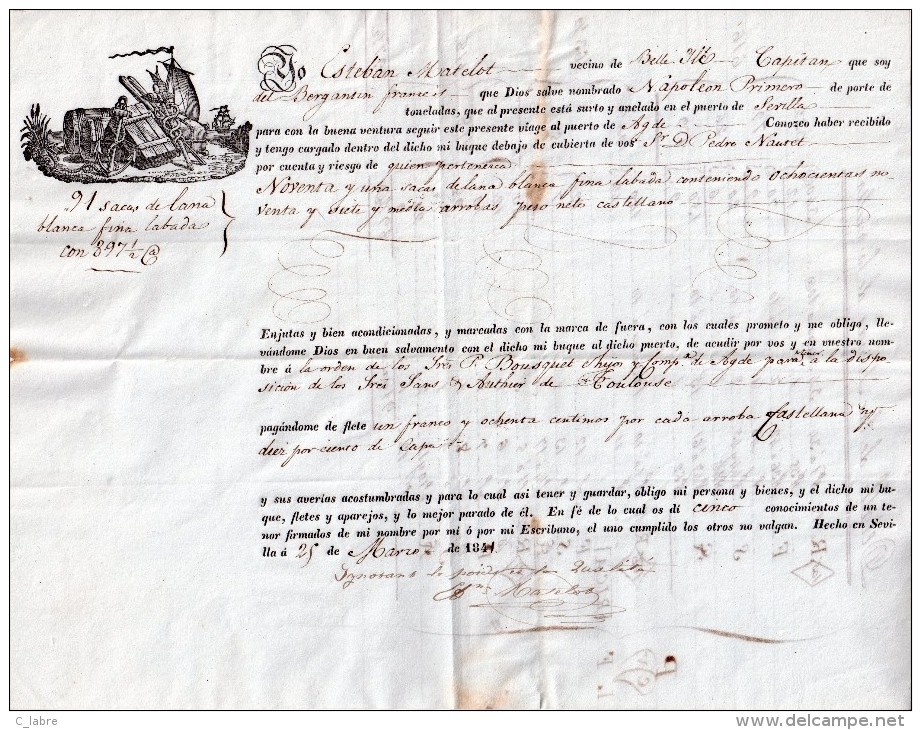 Yo Esteban Matelot vecino de Belle Ile Capitan que soy
del Bergantin frances que Dios salve nombrado Napoleon Primero de porte de
toneladas, que al presente está surto y anclado en el puerto de Sevilla
para con la buena ventura seguir este presente viage al puerto de Agde Conozco haber recibido
y tengo cargado dentro del dicho mi buque debajo de cubierta de vos Sr. D. Pedro Nautet
por cuenta y riesgo de quien pertenezca
Noventa y una sacas de lana blanca fina labada conteniendo ochocientas no
venta y siete y media arrobas peso neto castellano
91 sacas de lana
blanca fina labada
con 897 1/2 @
Enjutas y bien acondicionadas, y marcadas con la marca de fuera, con los cuales prometo y me obligo, lle-
vándome Dios en buen salvamento con el dicho mi buque al dicho puerto, de acudir por vos y en vuestro nom-
bre á la orden de los Sres P. Bousquet é hijos y Compa. de Agde para á la dispo
sicion de los Sres Sans & Authier de Toulouse
pagándome de flete un franco y ochenta centimos por cada arroba Castellana y
diez por ciento de Capa
y sus averías acostumbradas y para lo cual asi tener y guardar, obligo mi persona y bienes, y el dicho mi bu-
que, fletes y aparejos, y lo mejor parado de él. En fé de lo cual os dí cinco conocimientos de un te-
nor firmados de mi nombre por mí ó por mi Escribano, el uno cumplido los otros no valgan. Hecho en Sevi-
lla á 25 de Marzo de 1841.
Ignorant le poids et la qualité
Matelot
C_labre